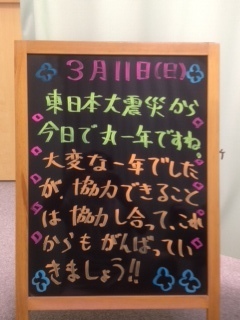 3月11日(日)
東日本大震災から
今日で丸一年ですね。
大変な一年でした
が、協力できること
は協力し合って、これ
からもがんばってい
きましょう!!